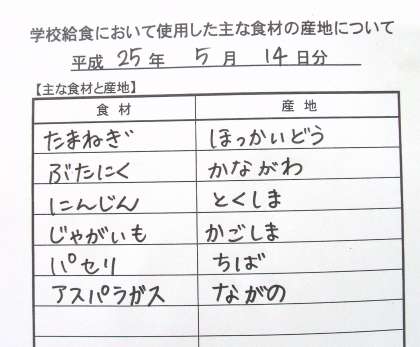 学校給食において使用した主な食材の産地について
平成 25 年 5 月 14 日分
【主な食材と産地】
食材 産地
たまねぎ ほっかいどう
ぶたにく かながわ
にんじん とくしま
じゃがいも かごしま
パセリ ちば
アスパラガス ながの